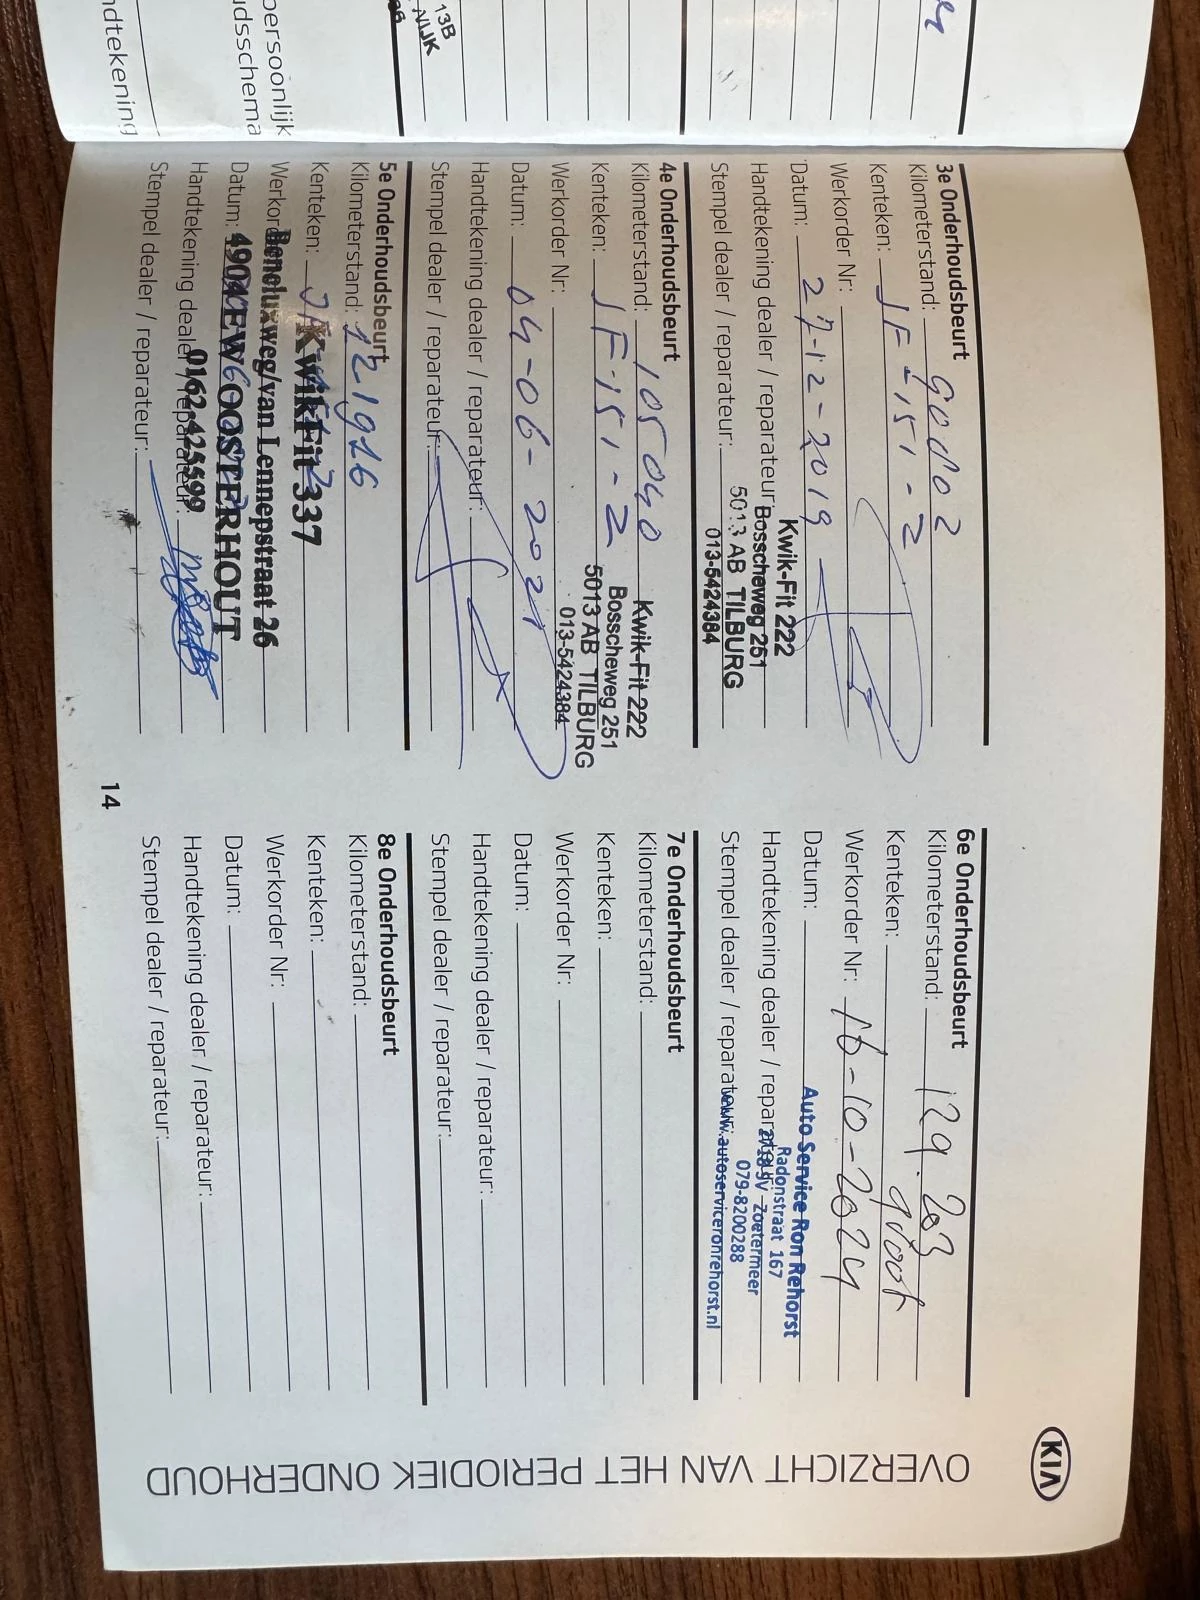 KIA
OVERZICHT VAN HET PERIODIEK ONDERHOUD
13B
NIJK
persoonlijk
dsschema
ndtekening
3e Onderhoudsbeurt
Kilometerstand: 90802
Kenteken: JF-151-Z
Werkorder Nr:
Datum: 27-12-2019
Handtekening dealer / reparateur:
Stempel dealer / reparateur:
Kwik-Fit 222
Bosscheweg 251
5013 AB TILBURG
013-5424384
4e Onderhoudsbeurt
Kilometerstand: 105040
Kenteken: JF-151-Z
Werkorder Nr:
Datum: 04-06-2021
Handtekening dealer / reparateur:
Stempel dealer / reparateur:
Kwik-Fit 222
Bosscheweg 251
5013 AB TILBURG
013-5424384
5e Onderhoudsbeurt
Kilometerstand: 121926
Kenteken:
Werkorder
Datum:
Handtekening dealer / reparateur:
Stempel dealer / reparateur:
KwikFit 337
Beneluxweg/van Lennepstraat 26
4904 EW OOSTERHOUT
0162-425599
6e Onderhoudsbeurt
Kilometerstand: 129.203
Kenteken: groot
Werkorder Nr: 16-10-2024
Datum:
Handtekening dealer / reparateur:
Stempel dealer / reparateur:
Auto Service Ron Rehorst
Radonstraat 167
Zoetermeer
079-8200288
www.autoserviceronrehorst.nl
7e Onderhoudsbeurt
Kilometerstand:
Kenteken:
Werkorder Nr:
Datum:
Handtekening dealer / reparateur:
Stempel dealer / reparateur:
8e Onderhoudsbeurt
Kilometerstand:
Kenteken:
Werkorder Nr:
Datum:
Handtekening dealer / reparateur:
Stempel dealer / reparateur:
14